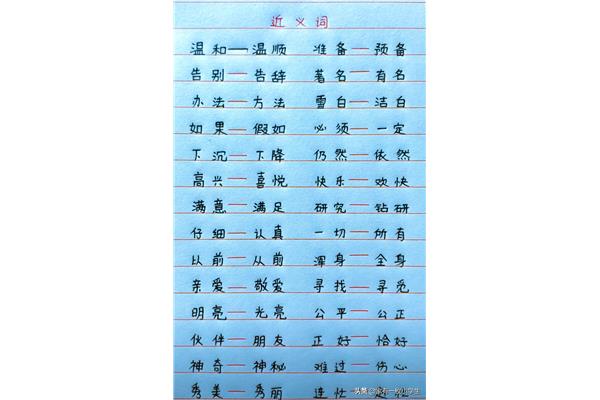 近义词
温和—温顺 准备—预备
告别—告辞 著名—有名
办法—方法 雪白—洁白
如果—假如 必须—一定
下沉—下降 仍然—依然
高兴—喜悦 快乐—欢快
满意—满足 研究—钻研
仔细—认真 一切—所有
以前—从前 浑身—全身
亲爱—敬爱 寻找—寻觅
明亮—光亮 公平—公正
伙伴—朋友 正好—恰好
神奇—神秘 难过—伤心
秀美—秀丽 连忙—
头条